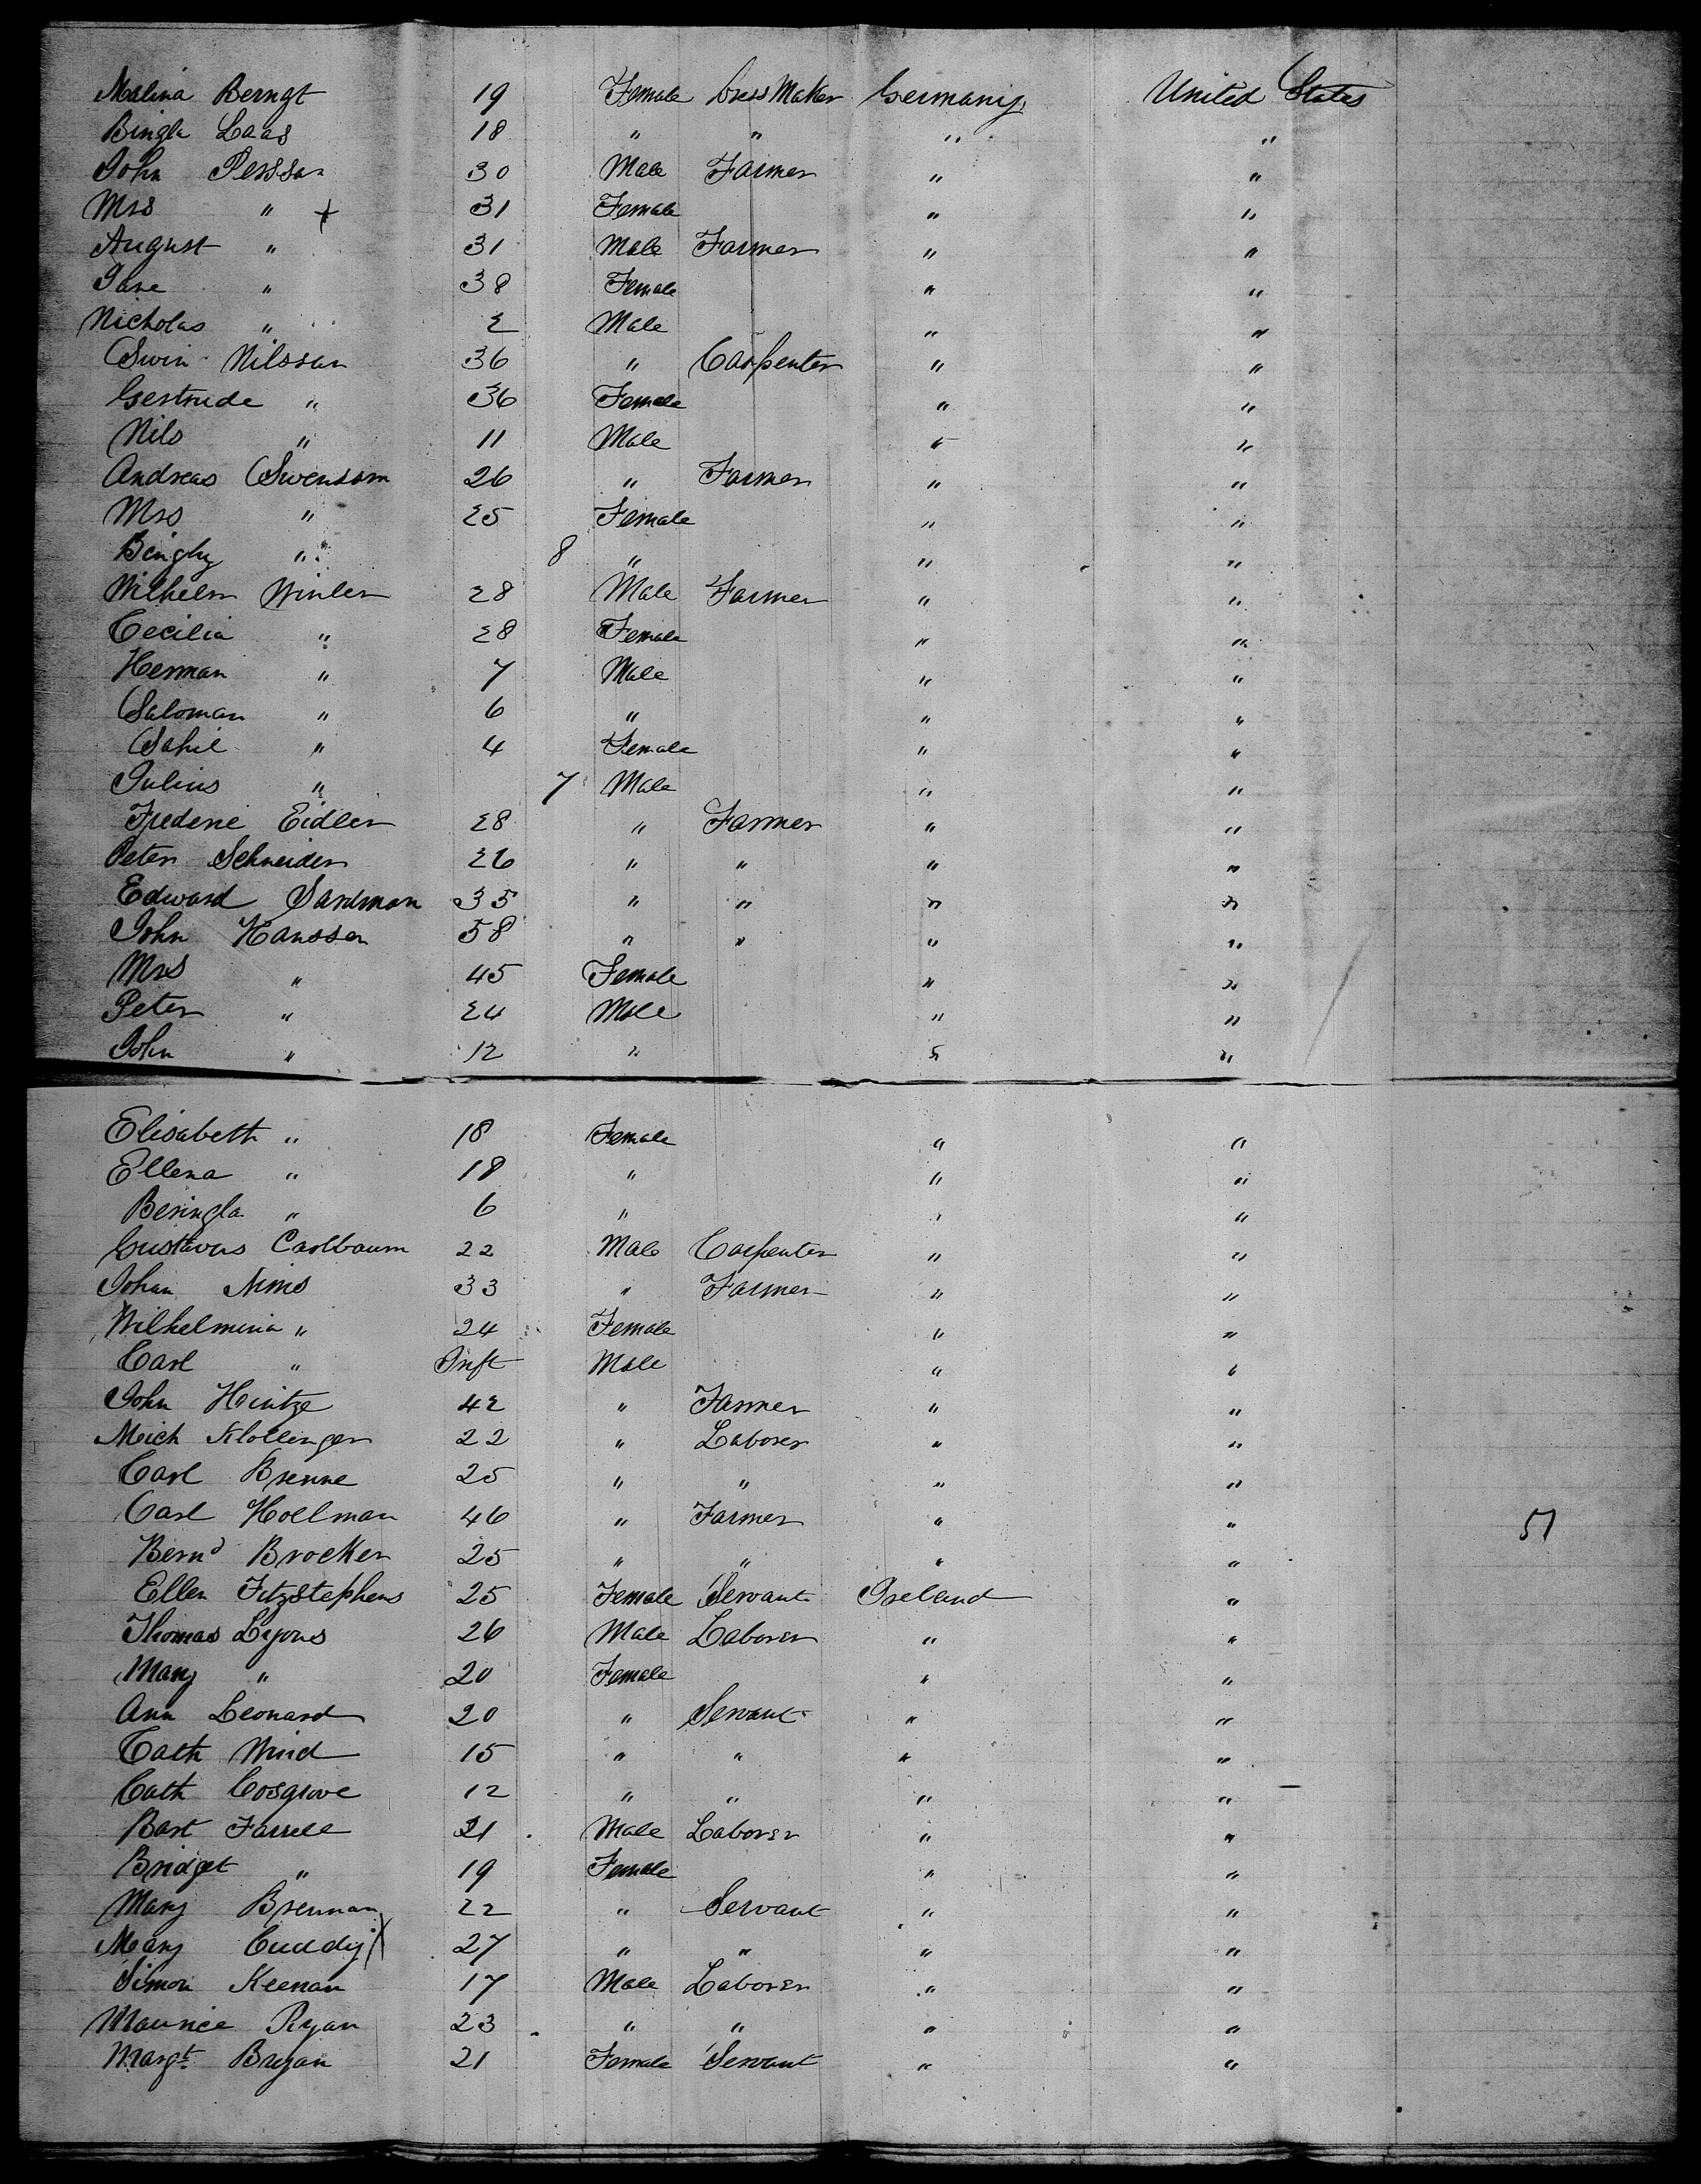 Malina Berngt 19 Female Dress Maker Germany United States
Bingla Laas 18 " " " "
John Persson 30 Male Farmer " "
Mrs " + 31 Female " "
August " 31 Male Farmer " "
Jane " 38 Female " "
Nicholas " 2 Male " "
Swin Nilsson 36 " Carpenter " "
Gertrude " 36 Female " "
Nils " 11 Male " "
Andreas Swensson 26 " Farmer " "
Mrs " 25 Female " "
Bingly " 8 " " "
Wilhelm Winler 28 Male Farmer " "
Cecilia " 28 Female " "
Herman " 7 Male " "
Saloman " 6 " " "
Sophie " 4 Female " "
Julius " 7 Male " "
Frederic Eidler 28 " Farmer " "
Peter Schneider 26 " " " "
Edward Sandman 35 " " " "
John Hanssen 58 " " " "
Mrs " 45 Female " "
Peter " 24 Male " "
John " 12 " " "
Elisabeth " 18 Female " "
Ellena " 18 " " "
Beringla " 6 " " "
Gustavus Carlbaum 22 Male Carpenter " "
Johan Nims 33 " Farmer " "
Wilhelmina " 24 Female " "
Carl " Inft Male " "
John Heintze 42 " Farmer " "
Mich Klollinger 22 " Laborer " "
Carl Brenne 25 " " " "
Carl Hollman 46 " Farmer " " 51
Bernd Brocker 25 " " " "
Ellen Fitzstephens 25 Female Servant Ireland "
Thomas Lyons 26 Male Laborer " "
Mary " 20 Female " "
Ann Leonard 20 " Servant " "
Cath 15 " " " "
Cath Cosgrove 12 " " " "
Bart Farrell 21 Male Laborer " "
Bridget " 19 Female " "
Mary Brennan 22 " Servant " "
Mary Cuddy X 27 " " " "
Simon Keenan 17 Male Laborer " "
Maurice Ryan 23 " " " "
Margt Bryan 21 Female Servant " "